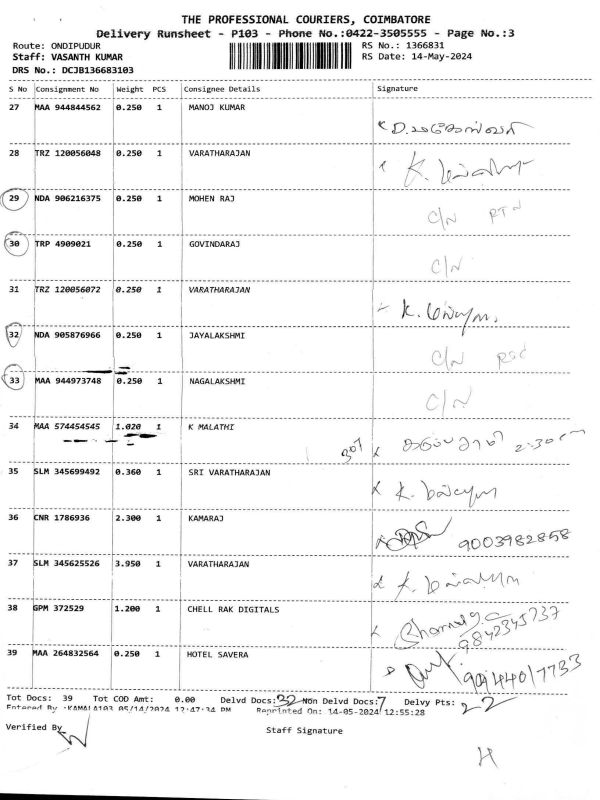 THE PROFESSIONAL COURIERS, COIMBATORE
Delivery Runsheet - P103 - Phone No.:0422-3505555 - Page No.:3
Route: ONDIPUDUR RS No.: 1366831
Staff: VASANTH KUMAR RS Date: 14-May-2024
DRS No.: DCJB136683103
S No Consignment No Weight PCS Consignee Details Signature
27 MAA 944844562 0.250 1 MANOJ KUMAR
28 TRZ 120056048 0.250 1 VARATHARAJAN K.
29 NDA 906216375 0.250 1 MOHEN RAJ C/N RTN
30 TRP 4909021 0.250 1 GOVINDARAJ C/N
31 TRZ 120056072 0.250 1 VARATHARAJAN K.
32 NDA 905876966 0.250 1 JAYALAKSHMI C/N
33 MAA 944973748 0.250 1 NAGALAKSHMI C/N
34 MAA 574454545 1.020 1 K MALATHI
35 SLM 345699492 0.360 1 SRI VARATHARAJAN K.
36 CNR 1786936 2.300 1 KAMARAJ 9003982858
37 SLM 345625526 3.950 1 VARATHARAJAN K.
38 GPM 372529 1.200 1 CHELL RAK DIGITALS 9842345737
39 MAA 264832564 0.250 1 HOTEL SAVERA
Tot Docs: 39 Tot COD Amt: 0.00 Delvd Docs: 32 Non Delvd Docs: 7 Delvy Pts: 22
Entered By :KAMALA103 05/14/2024 12:47:34 PM Reprinted On: 14-05-2024 12:55:28
Verified By Staff Signature